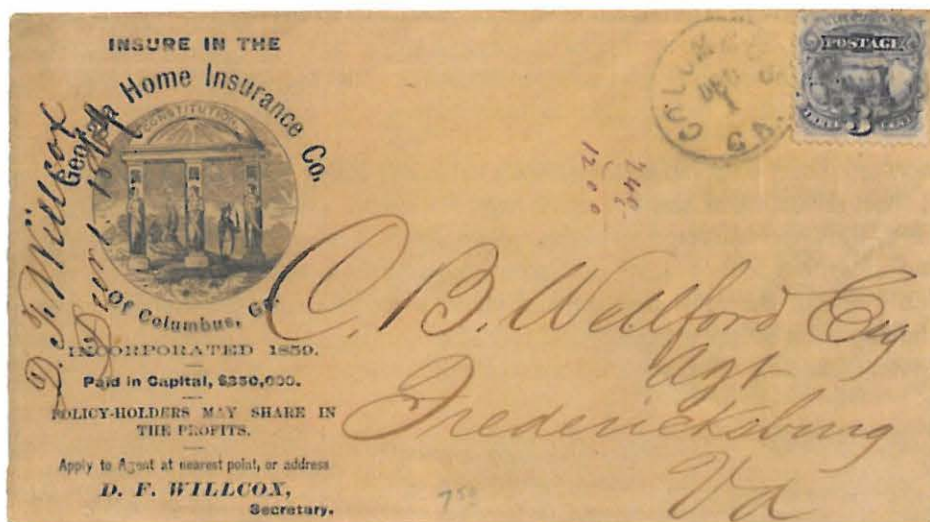 INSURE IN THE
Georgia Home Insurance Co.
CONSTITUTION
Of Columbus, Ga.
INCORPORATED 1859.
Paid in Capital, $350,000.
POLICY-HOLDERS MAY SHARE IN
THE PROFITS.
Apply to Agent at nearest point, or address
D. F. WILLCOX,
Secretary.
D. F. Willcox
COLUMBUS
DEC
1
GA.
POSTAGE
3
THREE CENTS
1200
C. B. Wellford Esq
Agt
Fredericksburg
Va
7 50